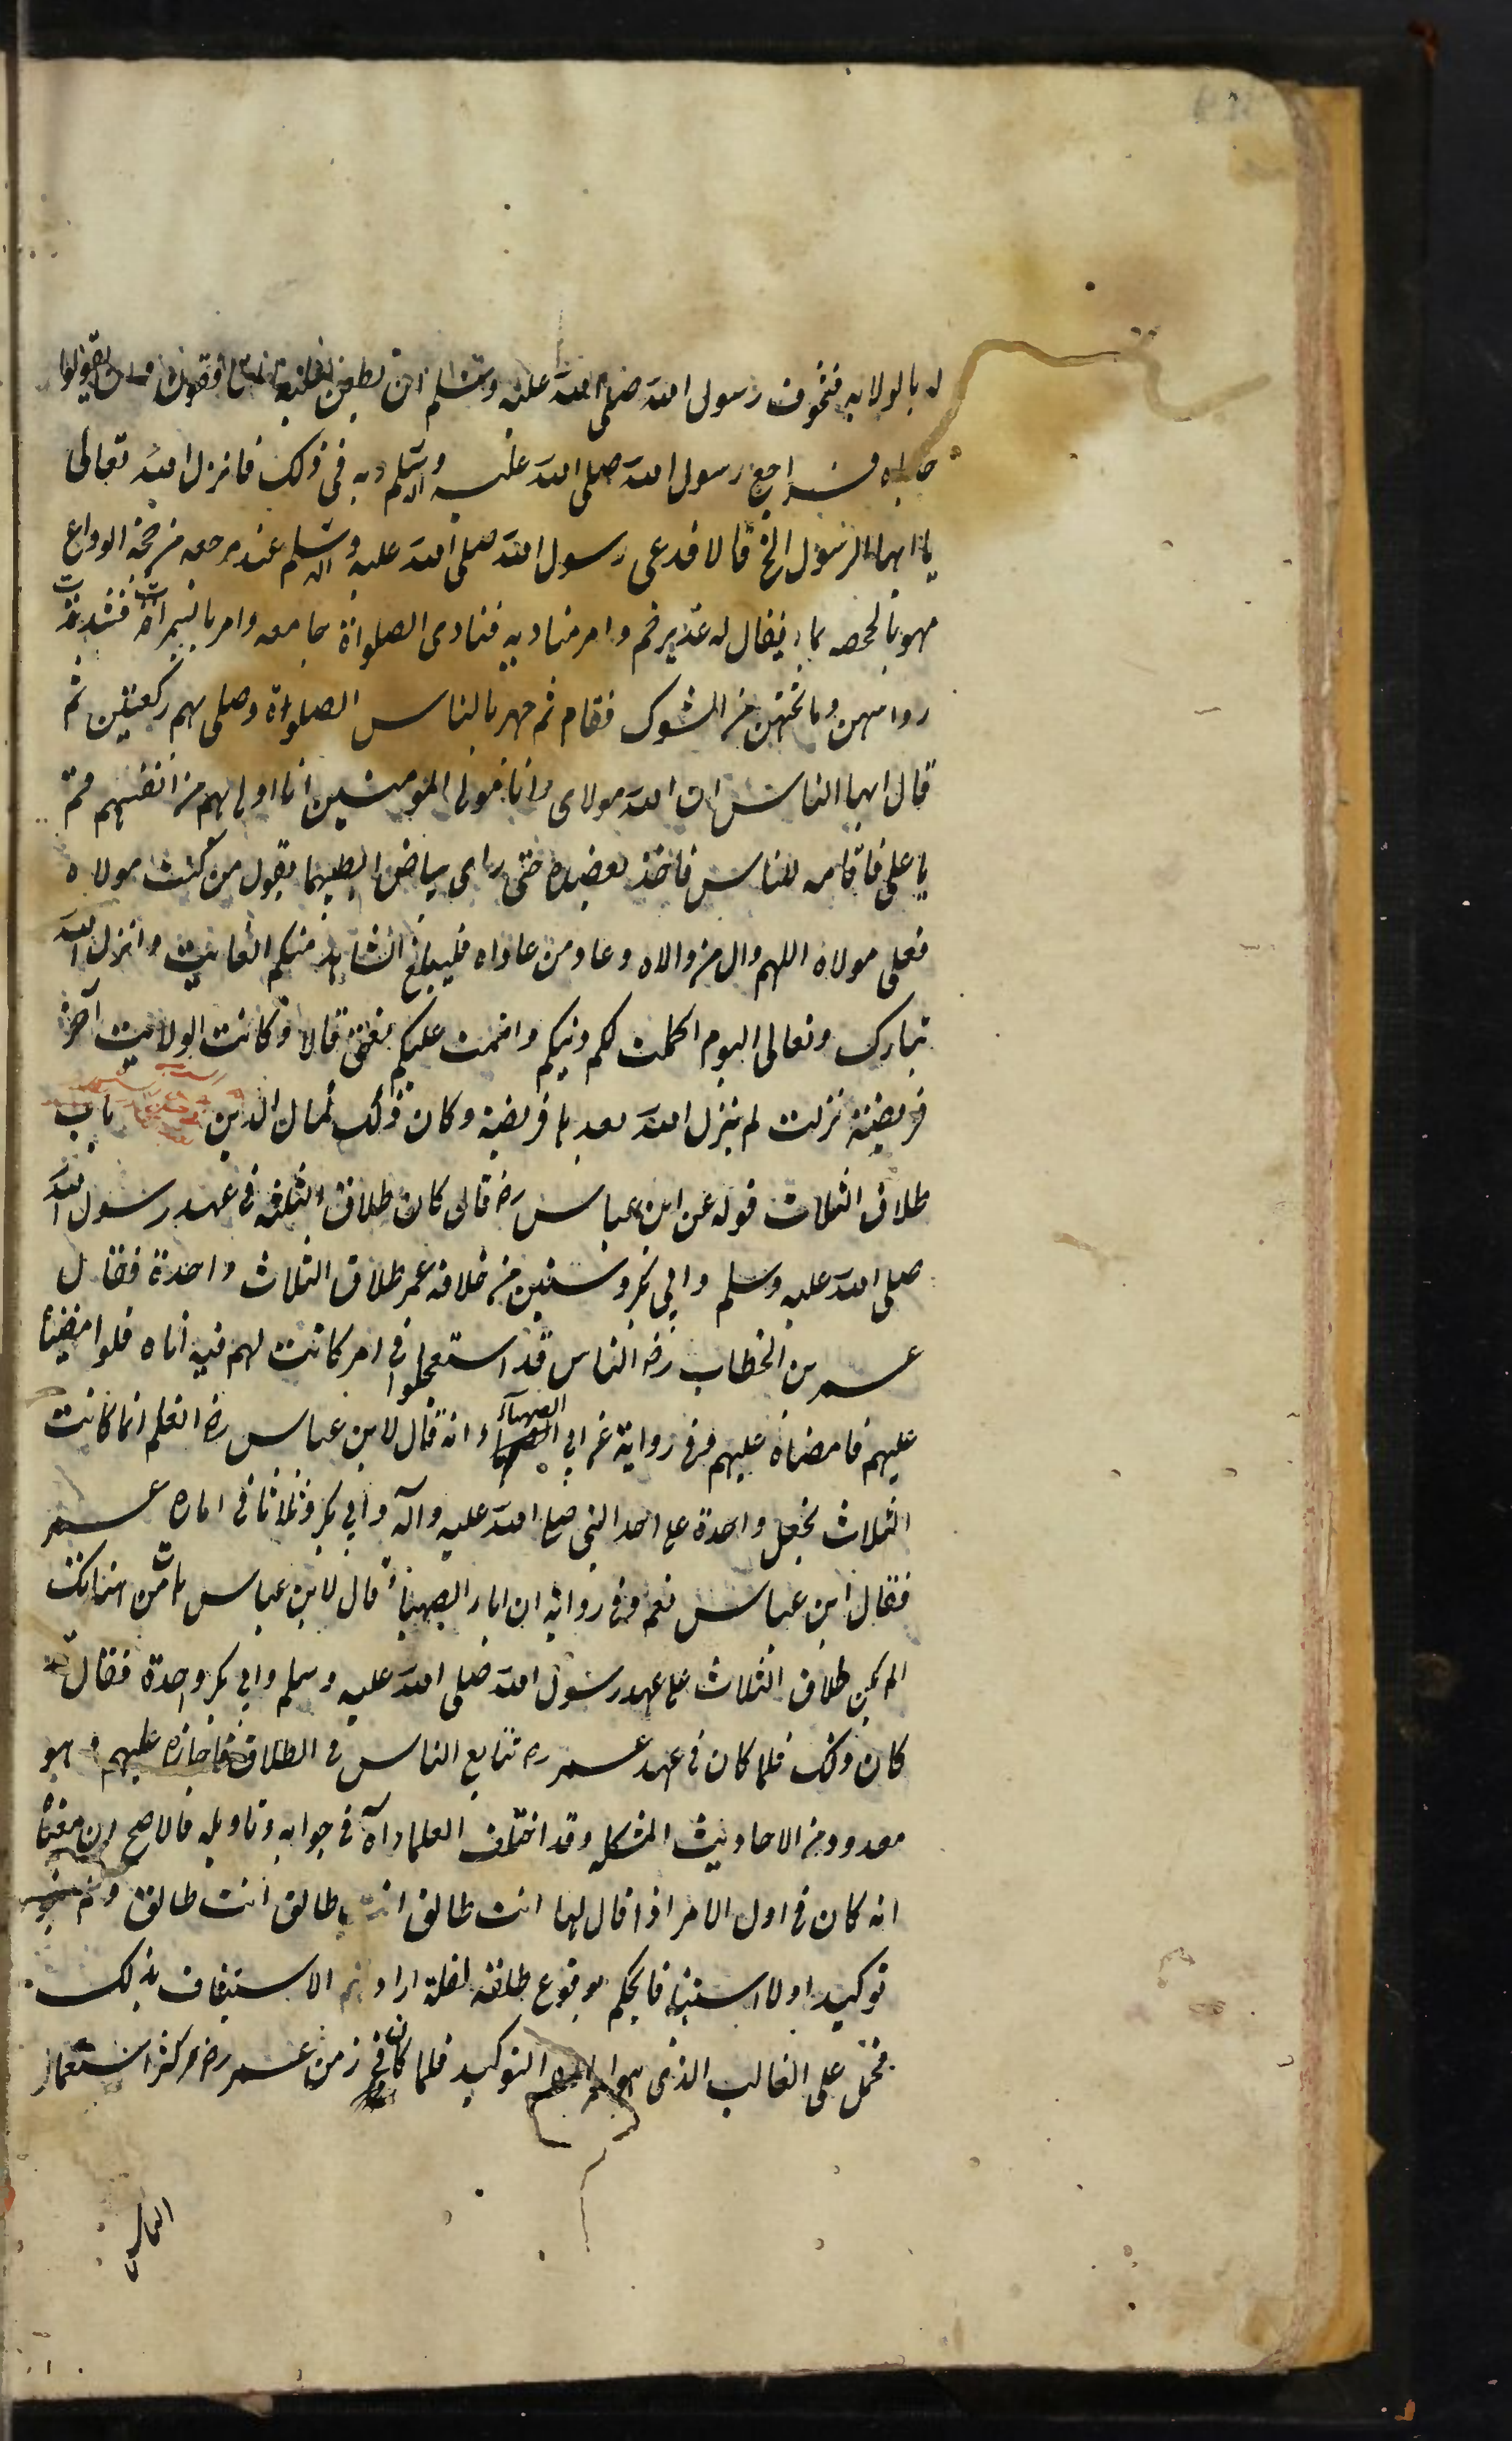 له بالولايه فتخوف رسول الله صلى الله عليه وسلم ان يطعن فيه الناس وان يقولوا
حاباه فراجع رسول الله صلى الله عليه وآله وسلم ربه في ذلك فانزل الله تعالى
يا ايها الرسول الخ قالا فدعى رسول الله صلى الله عليه وآله وسلم عند مرجعه من حجة الوداع
بما يقال له غدير خم وامر مناديه فنادى الصلواة جامعه وامر بالنمرات فشذبت
وما تحتهن من الشوك فقام ثم جهر بالناس الصلواة وصلى بهم ركعتين ثم
قال ايها الناس ان الله مولاى وانا مولى المومنين انا اولى بهم من انفسهم قم
يا على فاقامه للناس فاخذ بعضده حتى راى بياض ابطيهما يقول من كنت مولاه
فعلى مولاه اللهم وال من والاه وعاد من عاداه فليبلغ الشاهد منكم الغايب وانزل الله
تبارك وتعالى اليوم اكملت لكم دينكم واتممت عليكم نعمتى قالا وكانت الولاية آخر
فريضة نزلت لم ينزل الله بعدها فريضة وكان ذلك كمال الدين باب
طلاق الثلاث قوله عن ابن عباس رض قال كان طلاق الثلثة فى عهد رسول الله
صلى الله عليه وسلم وابي بكر وسنتين من خلافة عمر طلاق الثلاث واحدة فقال
عمر بن الخطاب رض الناس قد استعجلوا في امر كانت لهم فيه اناه فلو امضينا
عليهم فامضاه عليهم وفى رواية عن ابي الصهباء انه قال لابن عباس رض اتعلم انما كانت
الثلاث تجعل واحدة على عهد النبى صلى الله عليه وآله وأبي بكر وثلاثا فى اماره عمر
فقال ابن عباس نعم وفى روايه ان ابا الصهبا قال لابن عباس هات من هناتك
الم يكن طلاق الثلاث على عهد رسول الله صلى الله عليه وسلم وابي بكر واحدة فقال قد
كان ذلك فلما كان فى عهد عمر رض تتابع الناس فى الطلاق فاجازه عليهم وهو
معدود من الاحاديث المشكله وقد اختلف العلماء فى جوابه وتاويله فالاصح ان معناه
انه كان فى اول الامر اذا قال لها انت طالق انت طالق انت طالق ولم ينو
توكيدا ولا استينافا يحكم بوقوع طلقة لقلة ارادتهم الاستيناف بذلك
فحمل على الغالب الذى هو التوكيد فلما كان فى زمن عمر رض وكثر استعمال
الناس